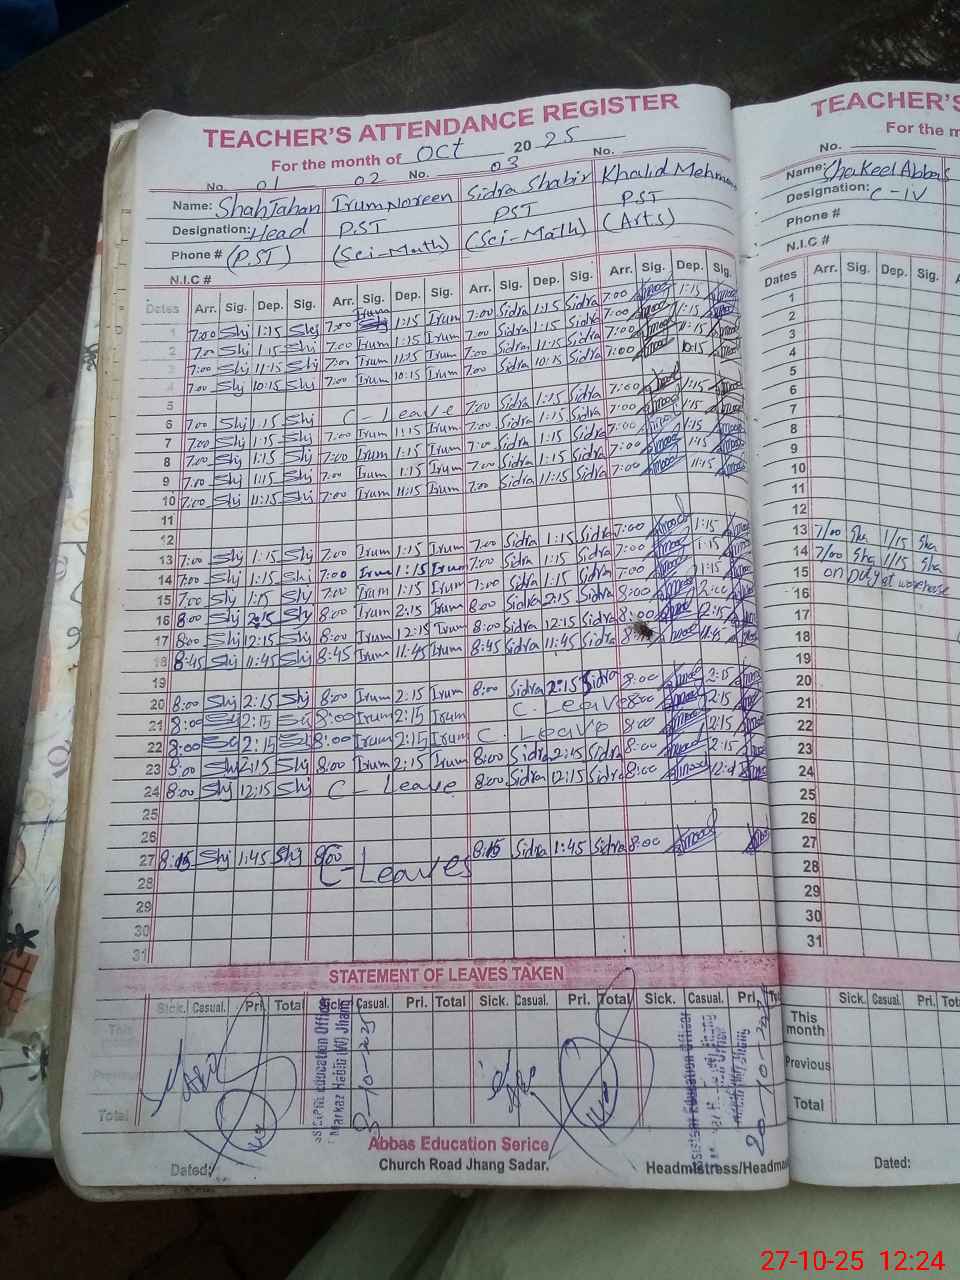 TEACHER'S ATTENDANCE REGISTER
For the month of Oct 2025
No. 01 02 No. 03 No.
Name: ShahJahan Irum Noreen Sidra Shabir Khalid Mehmood
Designation: Head PST PST PST
Phone # (P.ST) (Sci-Math) (Sci-Math) (Arts)
N.I.C #
Dates Arr. Sig. Dep. Sig. Arr. Sig. Dep. Sig. Arr. Sig. Dep. Sig. Arr. Sig. Dep. Sig.
1 7:00 Shj 1:15 Shj 7:00 Irum 1:15 Irum 7:00 Sidra 1:15 Sidra 7:00 1:15
2 7:00 Shj 1:15 Shj 7:00 Irum 1:15 Irum 7:00 Sidra 1:15 Sidra 7:00 1:15
3 7:00 Shj 11:15 Shj 7:00 Irum 11:15 Irum 7:00 Sidra 11:15 Sidra 7:00 11:15
4 7:00 Shj 10:15 Shj 7:00 Irum 10:15 Irum 7:00 Sidra 10:15 Sidra 7:00 10:15
5
6 7:00 Shj 1:15 Shj C-Leave 7:00 Sidra 1:15 Sidra 7:00 1:15
7 7:00 Shj 1:15 Shj 7:00 Irum 1:15 Irum 7:00 Sidra 1:15 Sidra 7:00 1:15
8 7:00 Shj 1:15 Shj 7:00 Irum 1:15 Irum 7:00 Sidra 1:15 Sidra 7:00 1:15
9 7:00 Shj 1:15 Shj 7:00 Irum 1:15 Irum 7:00 Sidra 1:15 Sidra 7:00 1:15
10 7:00 Shj 11:15 Shj 7:00 Irum 11:15 Irum 7:00 Sidra 11:15 Sidra 7:00 11:15
11
12
13 7:00 Shj 1:15 Shj 7:00 Irum 1:15 Irum 7:00 Sidra 1:15 Sidra 7:00 1:15
14 7:00 Shj 1:15 Shj 7:00 Irum 1:15 Irum 7:00 Sidra 1:15 Sidra 7:00 1:15
15 7:00 Shj 1:15 Shj 7:00 Irum 1:15 Irum 7:00 Sidra 1:15 Sidra 7:00 1:15
16 8:00 Shj 2:15 Shj 8:00 Irum 2:15 Irum 8:00 Sidra 2:15 Sidra 8:00
17 8:00 Shj 12:15 Shj 8:00 Irum 12:15 Irum 8:00 Sidra 12:15 Sidra 8:00 12:15
18 8:45 Shj 11:45 Shj 8:45 Irum 11:45 Irum 8:45 Sidra 11:45 Sidra 11:45
19
20 8:00 Shj 2:15 Shj 8:00 Irum 2:15 Irum 8:00 Sidra 2:15 Sidra 8:00 2:15
21 8:00 2:15 8:00 Irum 2:15 Irum C. Leave 8:00 2:15
22 8:00 2:15 8:00 Irum 2:15 Irum C. Leave 8:00 2:15
23 8:00 Shj 2:15 Shj 8:00 Irum 2:15 Irum 8:00 Sidra 2:15 Sidra 8:00 2:15
24 8:00 Shj 12:15 Shj C-Leave 8:00 Sidra 12:15 Sidra 8:00
25
26
27 8:15 Shj 1:45 Shj C-Leaves 8:15 Sidra 1:45 Sidra 8:00
28
29
30
31
STATEMENT OF LEAVES TAKEN
Sick. Casual. Pri. Total Sick. Casual. Pri. Total Sick. Casual. Pri. Total Sick. Casual. Pri.
This
Previous
Total
Abbas Education Serice
Dated: Church Road Jhang Sadar. Headmistress/Headma
TEACHER'S
For the m
No.
Name: Shakeel Abbas
Designation: C-IV
Phone #
N.I.C #
Dates Arr. Sig. Dep. Sig.
1
2
3
4
5
6
7
8
9
10
11
12
13 7/00 Sha 1/15 Sha
14 7/00 Sha 1/15 Sha
15 on Duty at warehouse
16
17
18
19
20
21
22
23
24
25
26
27
28
29
30
31
Sick. Casual. Pri. Tot
This month
Previous
Total
Dated:
27-10-25 12:24